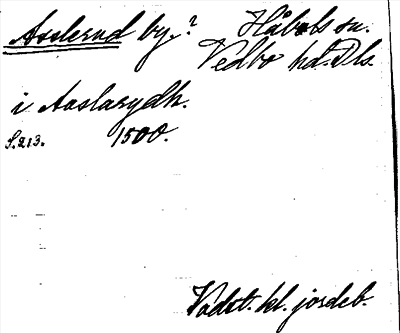 Asslerud by.? Håbols sn.
Vedbo hd. Dls.
i Aaslarydh.
S.213. 1500.
Vadst. kl. jordeb.